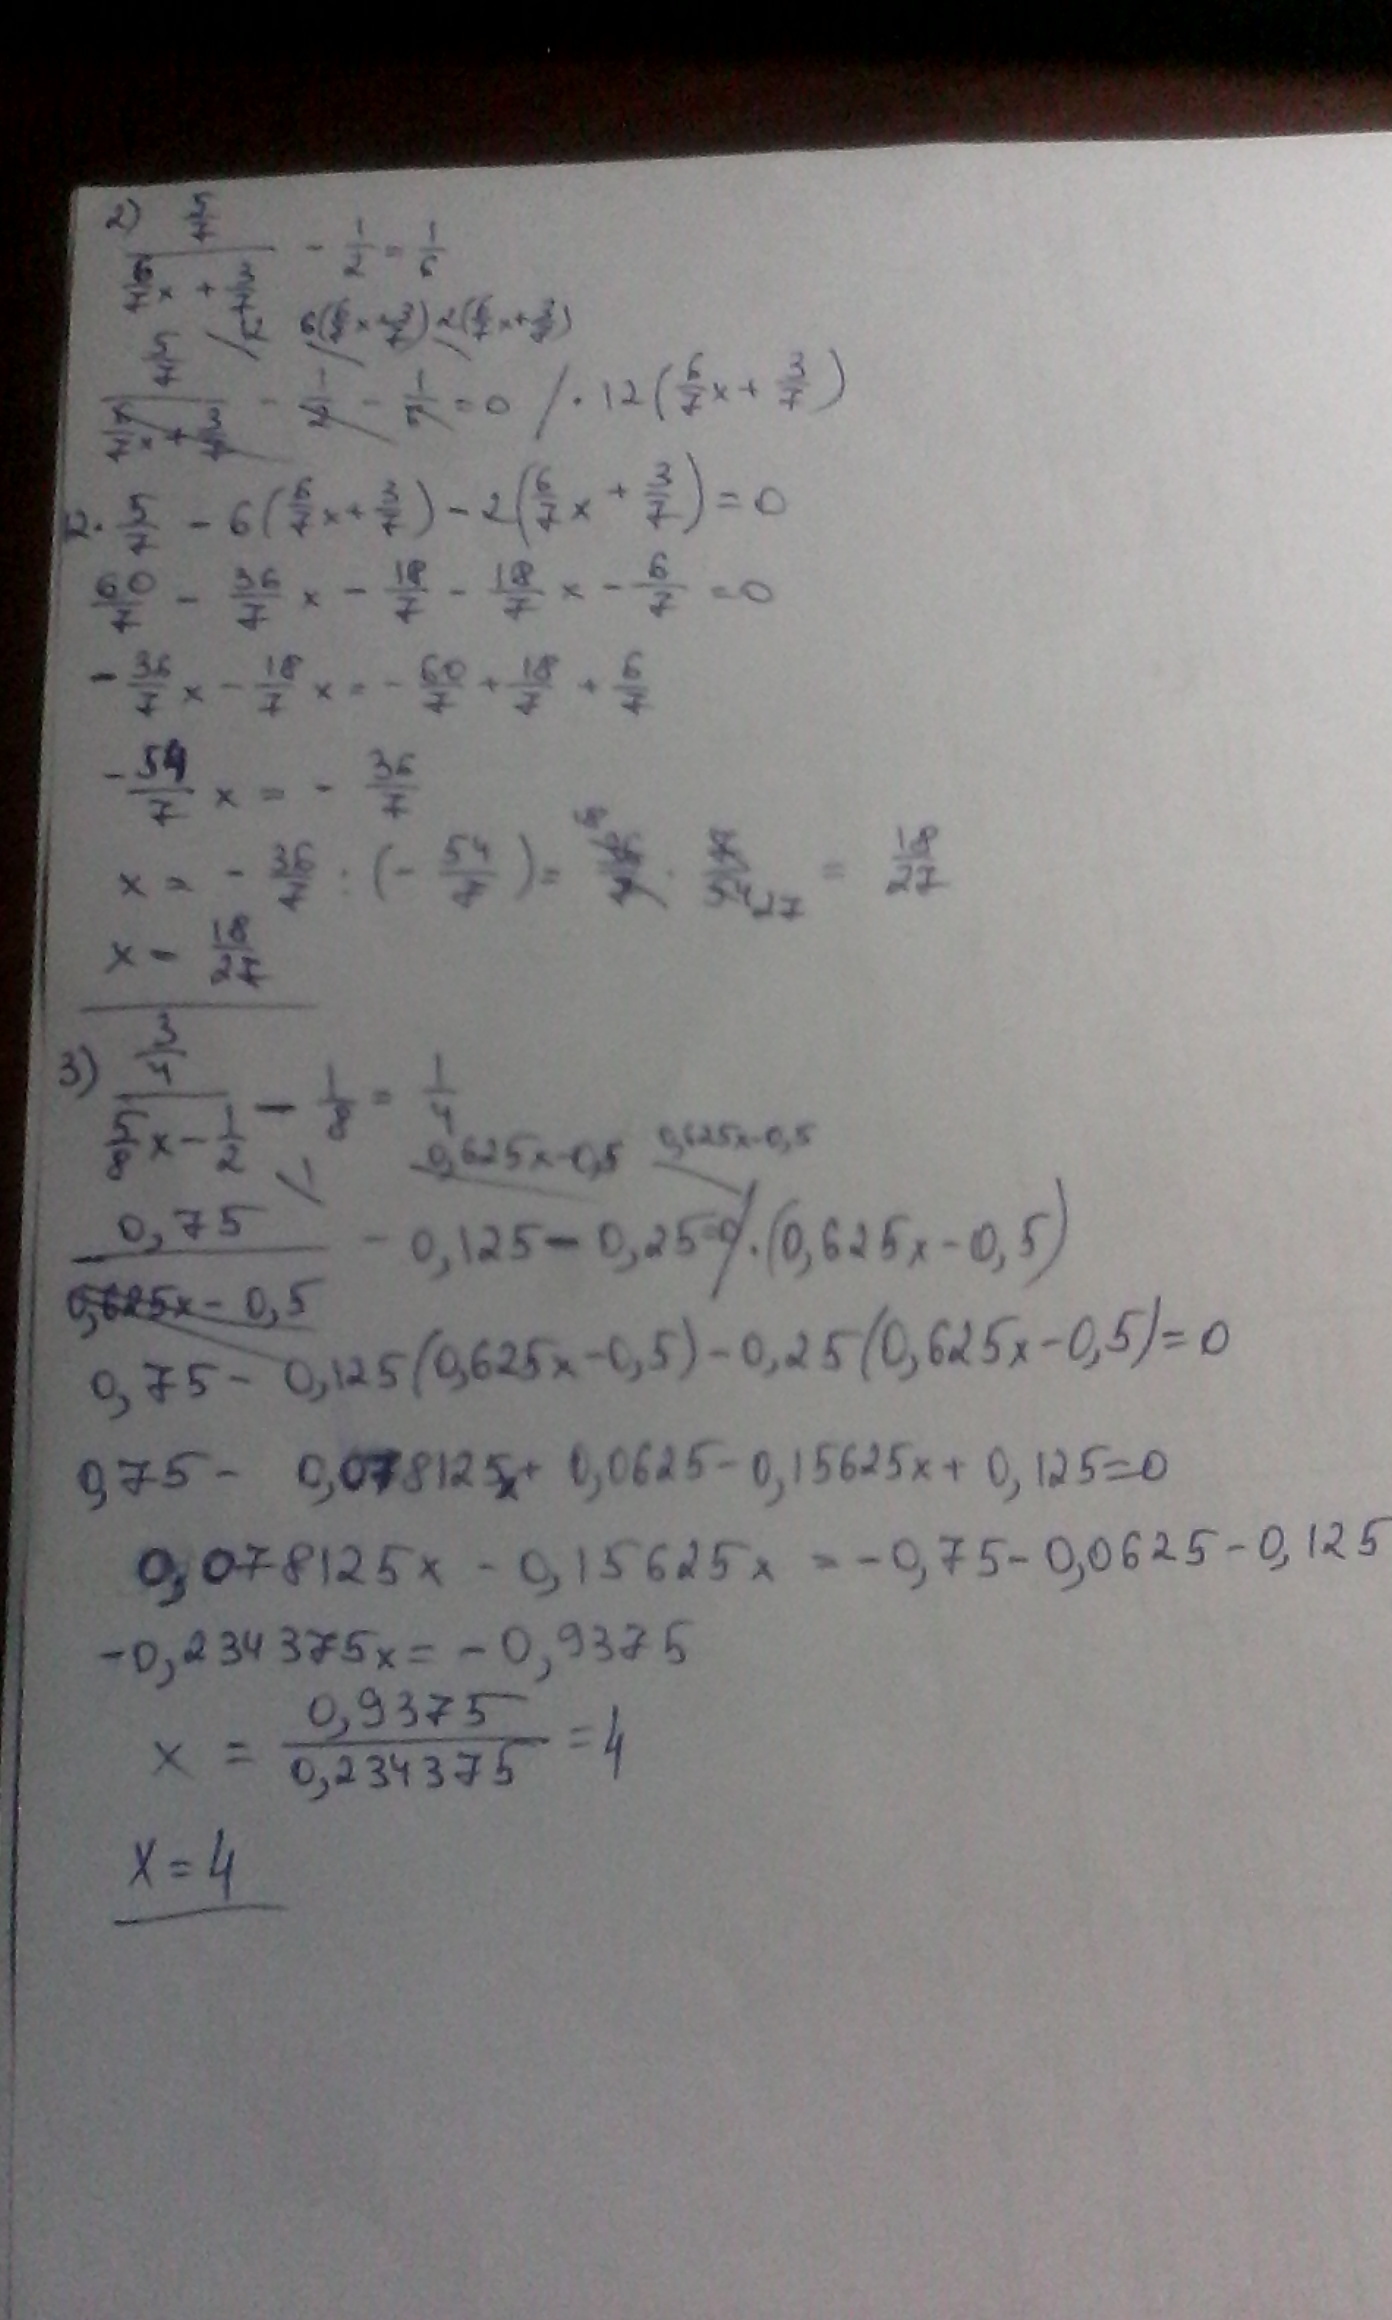 2) (5/7)/(6/7 x + 3/7) - 1/2 = 1/6
/12 6(6/7 x + 3/7) 2(6/7 x + 3/7)
(5/7)/(6/7 x + 3/7) - 1/2 - 1/6 = 0 / · 12(6/7 x + 3/7)
12 · 5/7 - 6(6/7 x + 3/7) - 2(6/7 x + 3/7) = 0
60/7 - 36/7 x - 18/7 - 18/7 x - 6/7 = 0
- 36/7 x - 18/7 x = - 60/7 + 18/7 + 6/7
- 54/7 x = - 36/7
x = - 36/7 : (- 54/7) = 36/7 · 7/54 18 27 = 18/27
x = 18/27
3) (3/4)/(5/8 x - 1/2) - 1/8 = 1/4
/1 0,625x-0,5 0,625x-0,5
0,75/(0,625x - 0,5) - 0,125 - 0,25=0 / · (0,625x - 0,5)
0,75 - 0,125(0,625x-0,5) - 0,25(0,625x-0,5) = 0
0,75 - 0,078125x + 0,0625 - 0,15625x + 0,125 = 0
0,078125x - 0,15625x = -0,75 - 0,0625 - 0,125
-0,234375x = -0,9375
x = 0,9375/0,234375 = 4
x = 4